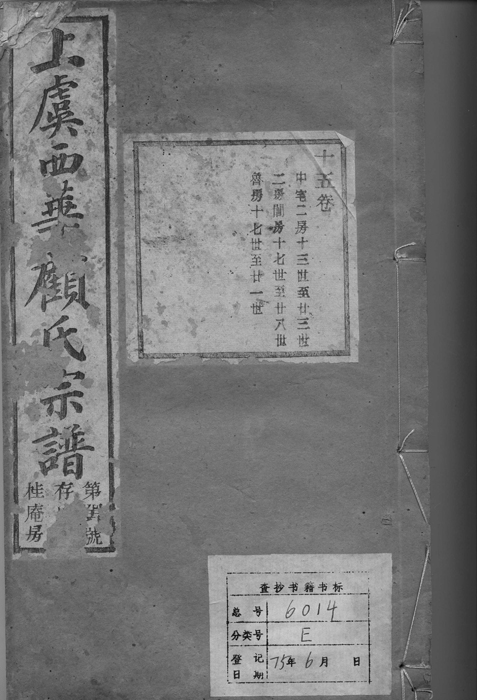 上虞西華顧氏宗譜
第 號
存
桂庵房
十五卷
中宅二房十三世至廿三世
二房閏房十七世至廿八世
善房十七世至廿一世
查抄书籍书标
总号 6014
分类号 E
登记日期 75年6月 日